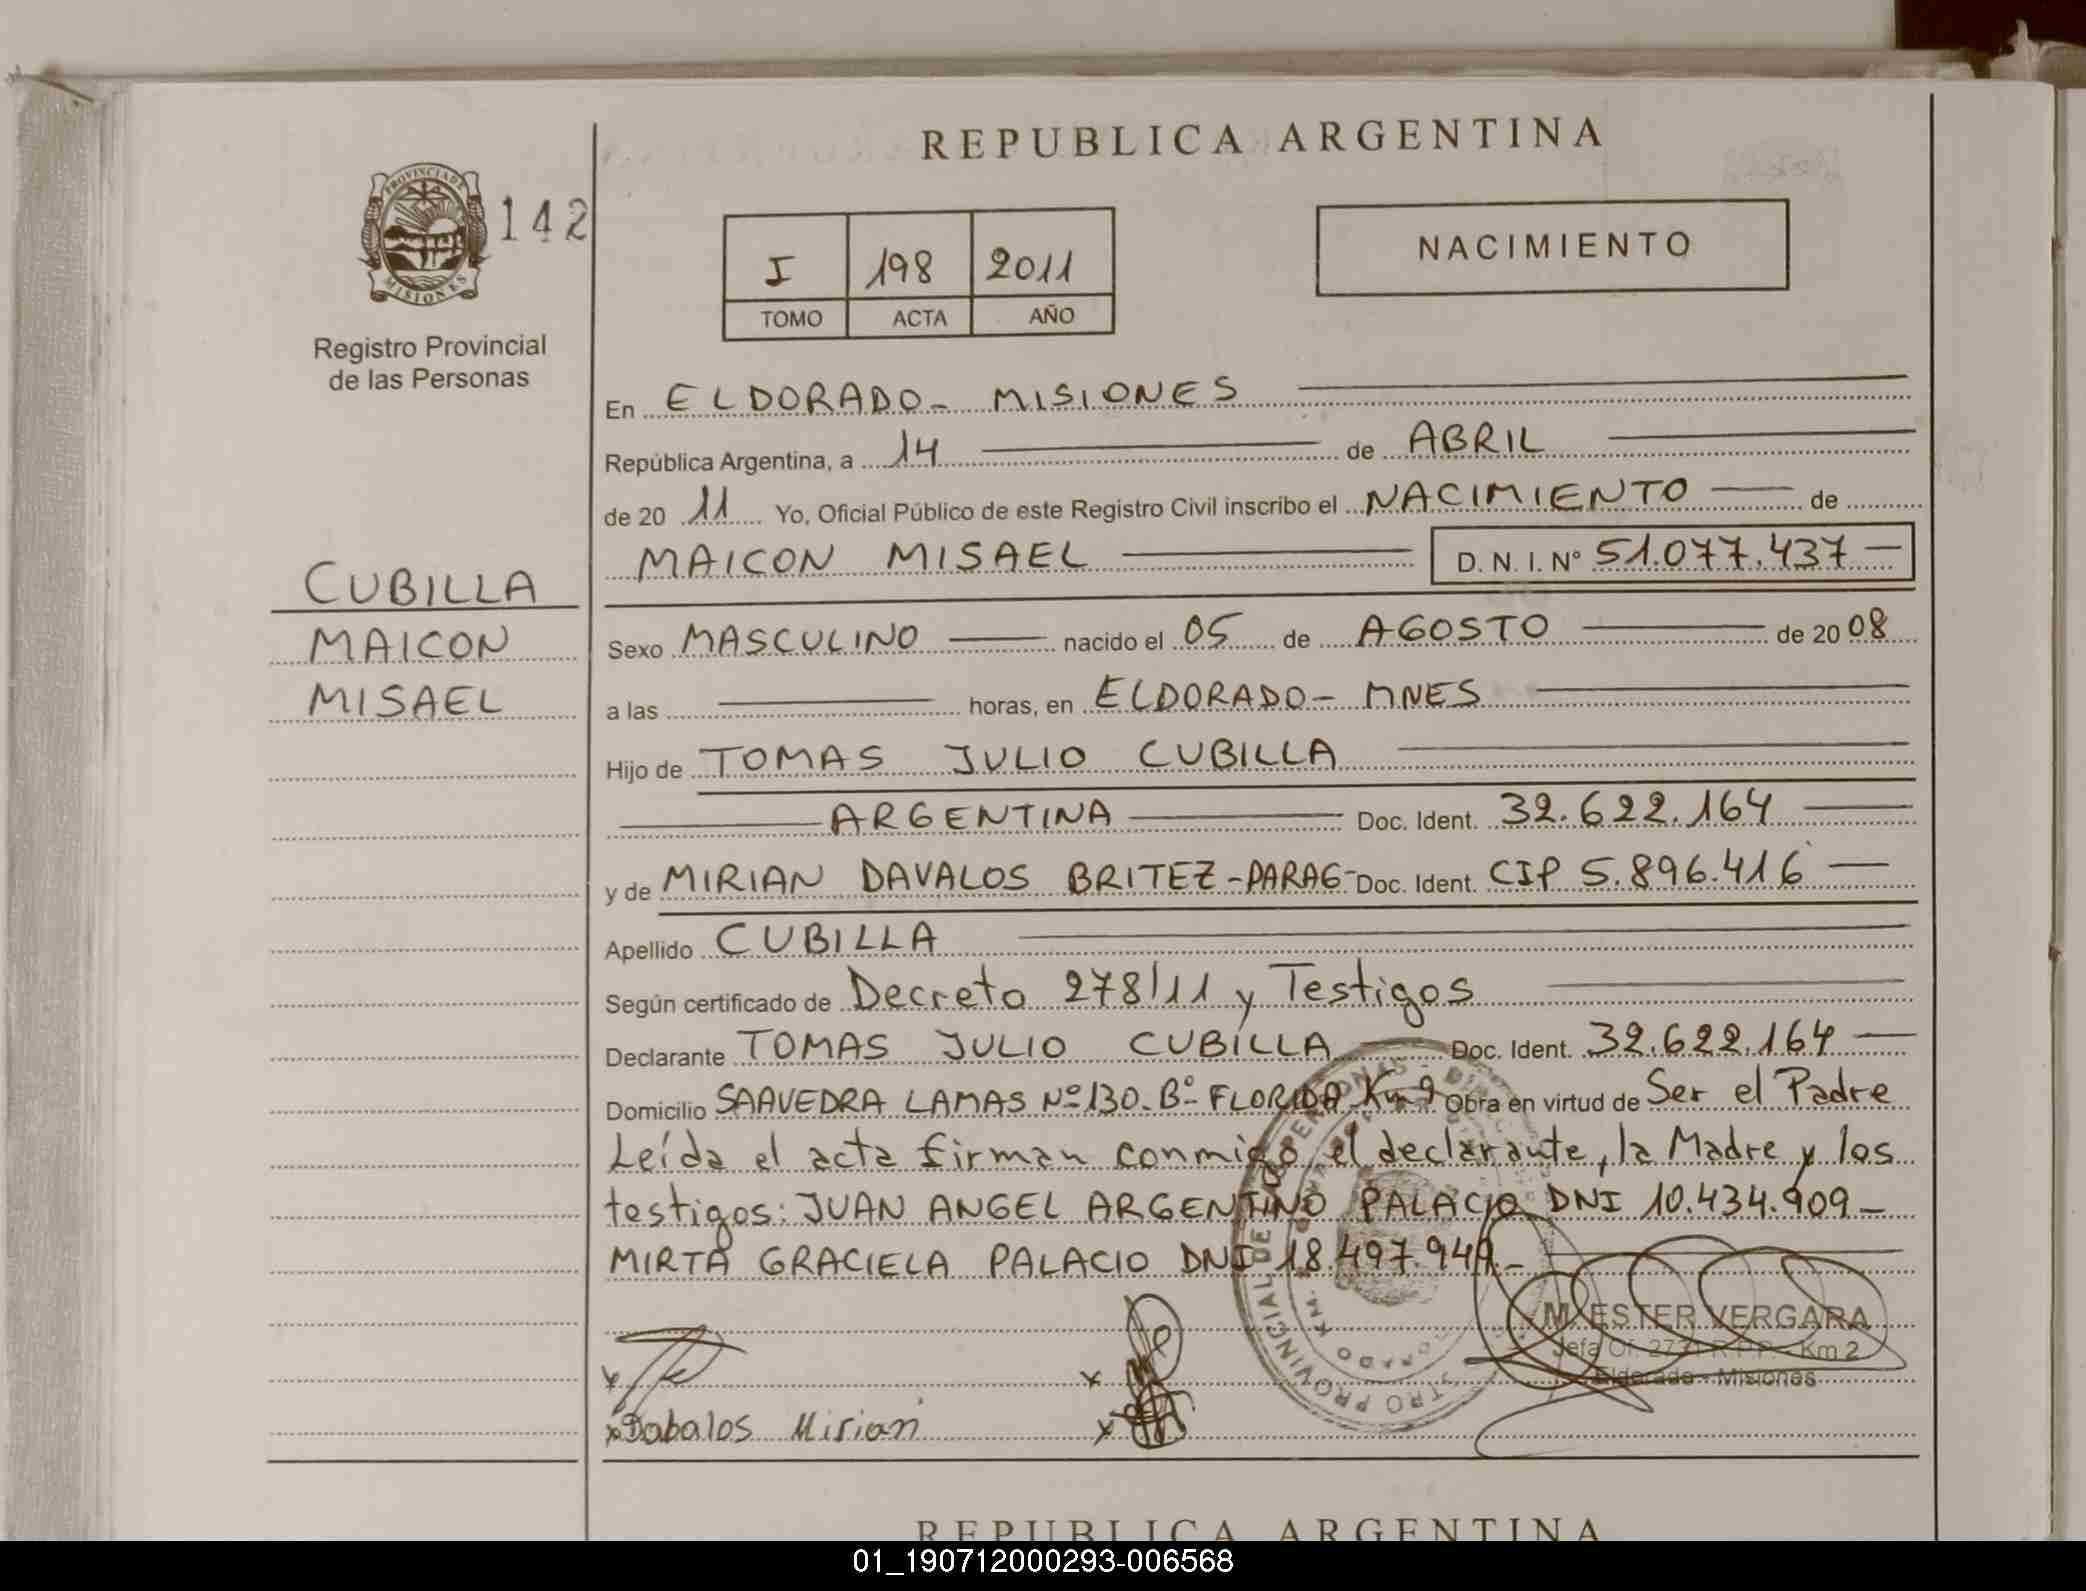 REPUBLICA ARGENTINA
PROVINCIA DE
MISIONES
142
Registro Provincial
de las Personas
I 198 2011
TOMO ACTA AÑO
NACIMIENTO
En ELDORADO - MISIONES
República Argentina, a 14 de ABRIL
de 20 11 Yo, Oficial Público de este Registro Civil inscribo el NACIMIENTO de
MAICON MISAEL D. N. I. Nº 51.077.437
CUBILLA
MAICON
MISAEL
Sexo MASCULINO nacido el 05 de AGOSTO de 20 08
a las horas, en ELDORADO - MNES
Hijo de TOMAS JULIO CUBILLA
ARGENTINA Doc. Ident. 32.622.164
y de MIRIAN DAVALOS BRITEZ - PARAG - Doc. Ident. CIP 5.896.416
Apellido CUBILLA
Según certificado de Decreto 278/11 y Testigos
Declarante TOMAS JULIO CUBILLA Doc. Ident. 32.622.164
Domicilio SAAVEDRA LAMAS Nº 130. Bº FLORIDA Km 9 Obra en virtud de Ser el Padre
Leída el acta firman conmigo, el declarante, la Madre y los
testigos: JUAN ANGEL ARGENTINO PALACIO DNI 10.434.909 -
MIRTA GRACIELA PALACIO DNI 18.497.949. -
M. ESTER VERGARA
Jefa Of. 2731 R.P.P. - Km 2
Eldorado - Misiones
x
x
x Dabalos Mirian
x
REPUBLICA ARGENTINA
01_190712000293-006568